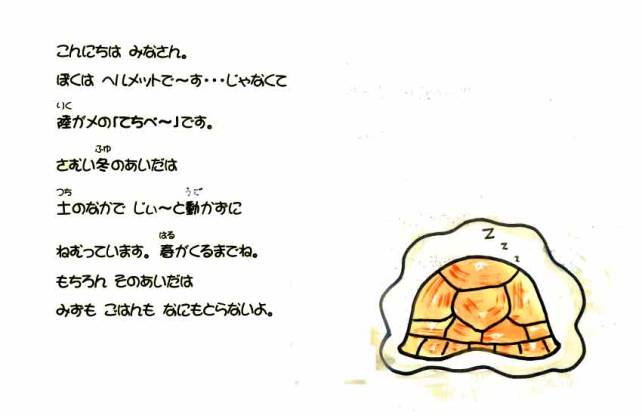 こんにちは みなさん。
ぼくは ヘルメットで〜す・・・じゃなくて
陸ガメの「てちべ〜」です。
さむい冬のあいだは
土のなかで じぃ〜と動かずに
ねむっています。春がくるまでね。
もちろん そのあいだは
みずも ごはんも なにもとらないよ。
z
z
z